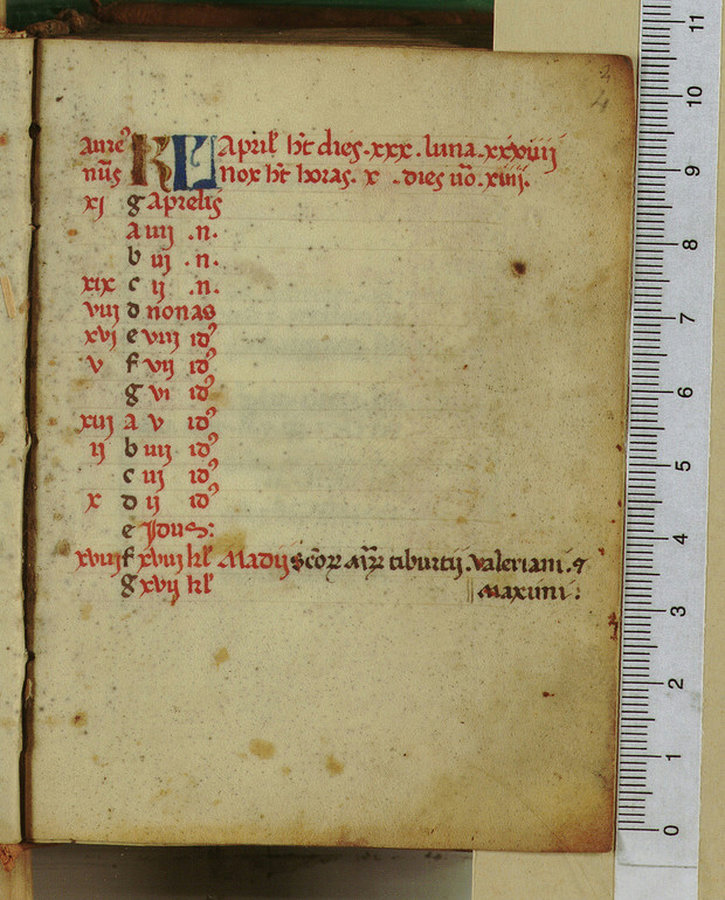 aure⁹ KL April̃ ħt dies . xxx . luna . xxviiij
nu̅s nox ħt horas . x . dies uo̅ . xiiij .
xj g Aprelis
a iiij . n .
b iij . n .
xix c ij . n .
viij d nonas
xvj e viij id⁹
v f vij id⁹
g vi id⁹
xiij a v id⁹
ij b iiij id⁹
c iij id⁹
x d ij id⁹
e Idus :
xviij f xviij kł Madij sco̅ꝝ mr̅ꝝ tiburtij . valeriani . ⁊
g xvij kł maximi :
11
10
9
8
7
6
5
4
3
2
1
0